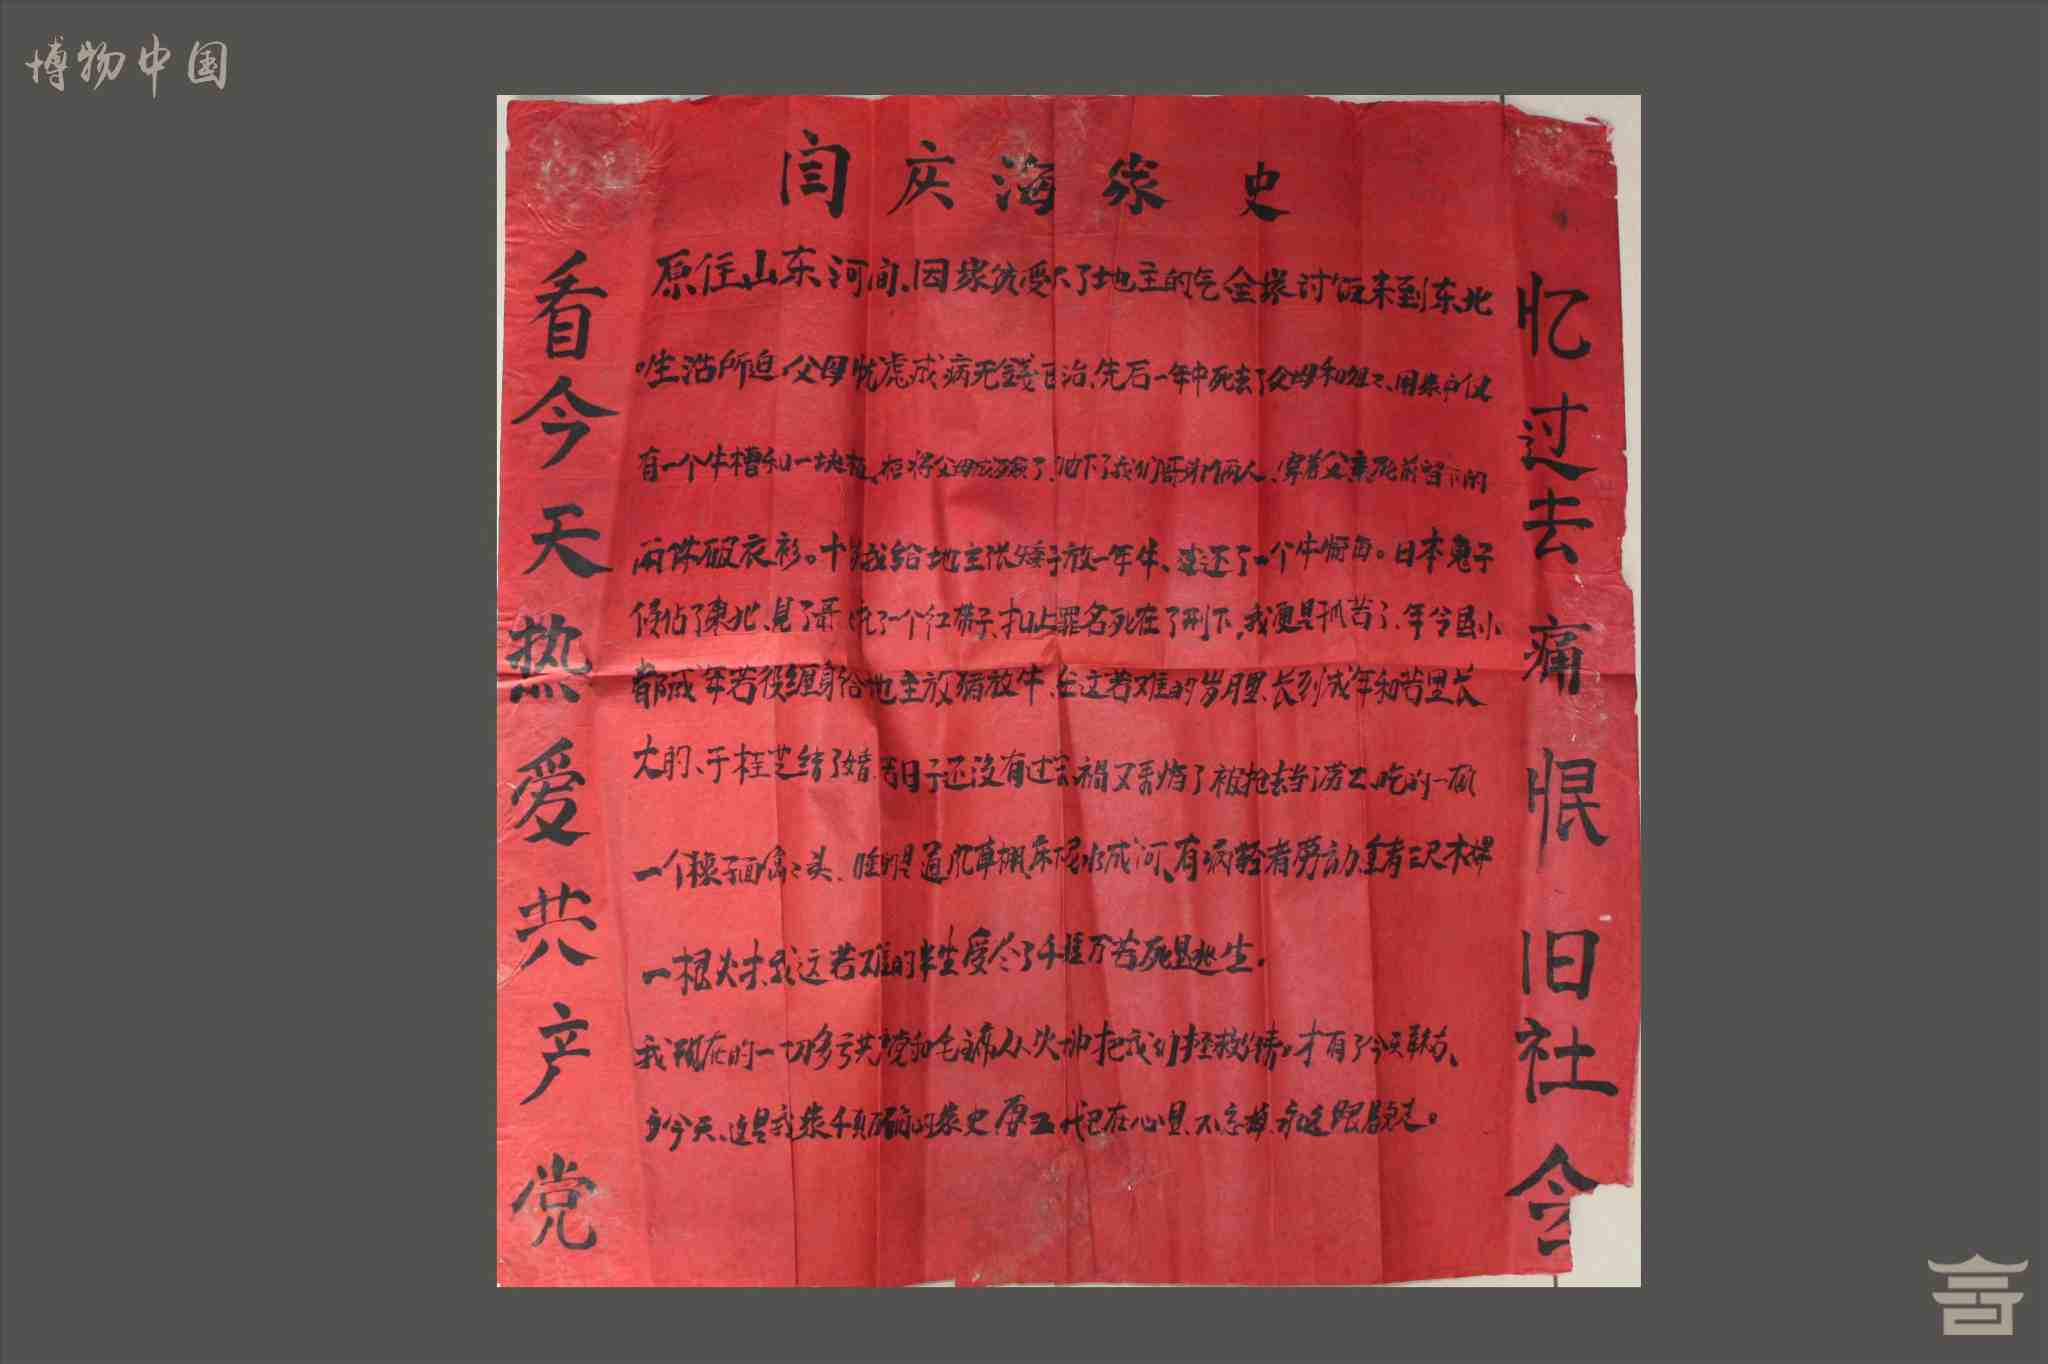 博物中国
闫庆海家史
忆过去痛恨旧社会
原住山东河间、因家贫受不了地主的气全家讨饭来到东北
。生活所迫,父母忧虑成病无钱医治、先后一年中死去了父母和姐姐、用家中仅
有一个牛槽和一块板、将父母 了、下了我们哥俩两人、穿着父亲死前留下的
两件破衣衫。十 我给地主张矮子放一年牛、还了一个牛 。日本鬼子
侵佔了东北、 了哥 了一个红带子、扎上罪名死在了刑下,我更是孤苦了、年令虽小
都成年苦役缠身给地主放猪放牛、在这苦难的岁月里、长到成年和苦里长
大的、于桂芝结了婚、苦日子还没有过 祸又 了被抢去当了劳工、吃的一顿
一个橡子面窝窝头、睡的是通风草棚床下尿水成河、有病轻者劳动、重者二尺木棒
一根火材、我这苦难的半生受尽了千难万苦死里逃生。
我现在的一切多亏共产党和毛主席 从火坑把我们拯救 才有了今天
今天、这是我家千真万确的家史 代记在心里、不忘掉、永远跟 走。
看今天热爱共产党